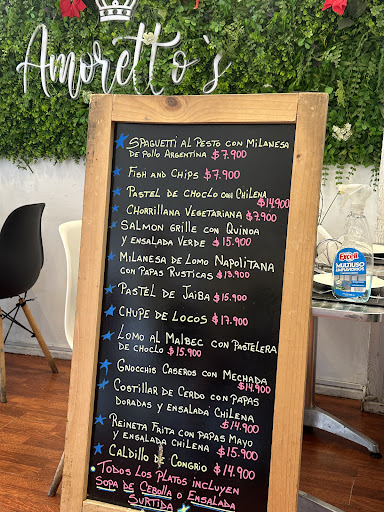 Amoretto's
Spaguetti al Pesto con Milanesa
de Pollo Argentina $7.900
Fish and Chips $7.900
Pastel de Choclo con Chilena
$14.900
Chorrillana Vegetariana $7.900
Salmon Grille con Quinoa
y Ensalada Verde $15.900
Milanesa de Lomo Napolitana
con Papas Rusticas $13.900
Pastel de Jaiba $15.900
Chupe de Locos $17.900
Lomo al Malbec con Pastelera
de Choclo $15.900
Gnocchis Caseros con Mechada
$14.900
Costillar de Cerdo con Papas
Doradas y Ensalada Chilena
$14.900
Reineta Frita con Papas Mayo
y Ensalada Chilena $15.900
Caldillo de Congrio $14.900
Todos los Platos incluyen
Sopa de Cebolla o Ensalada
Surtida
Excell
MULTIUSO
LIMPIAVIDRIOS